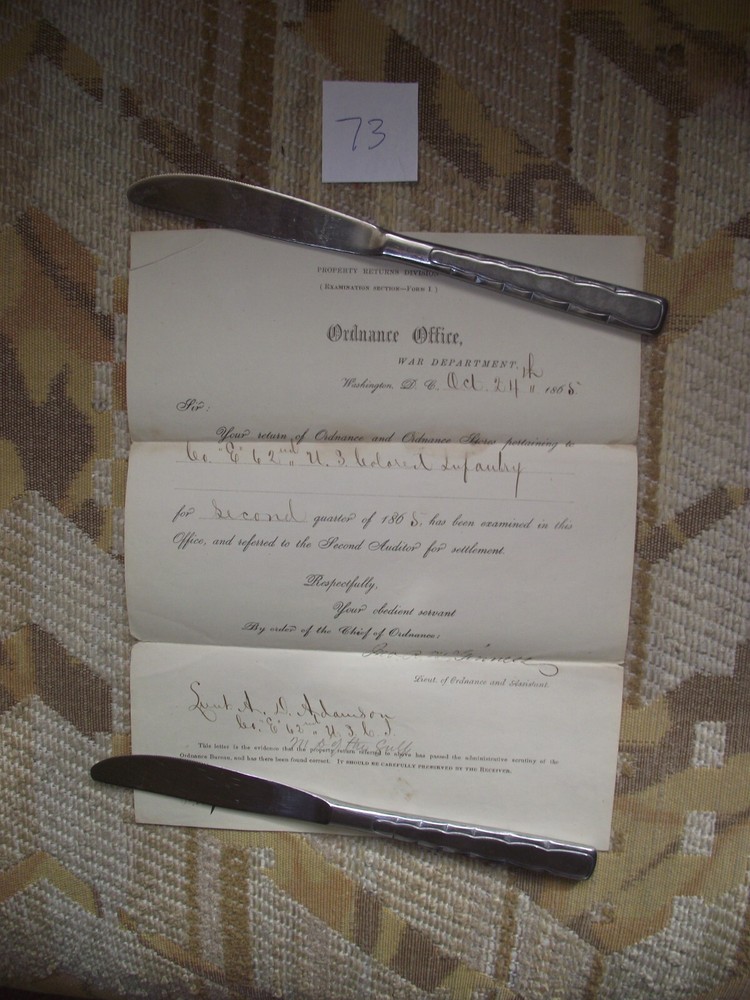 73
PROPERTY RETURNS DIVISION
(EXAMINATION SECTION—FORM 1)
Ordnance Office,
WAR DEPARTMENT,
Washington, D. C. Oct. 24th 1865.
Sir:
Your return of Ordnance and Ordnance Stores pertaining to
Co. "E" 62nd U. S. Colored Infantry
for Second quarter of 1865. has been examined in this
Office, and referred to the Second Auditor for settlement.
Respectfully,
Your obedient servant
By order of the Chief of Ordnance:
Lieut. of Ordnance and Assistant.
Lieut A. D. Adamson
Co. "E" 62nd U. S. C. I.
This letter is the evidence that the property return referred to above has passed the administrative scrutiny of the
Ordnance Bureau, and has there been found correct. IT SHOULD BE CAREFULLY PRESERVED BY THE RECEIVER.